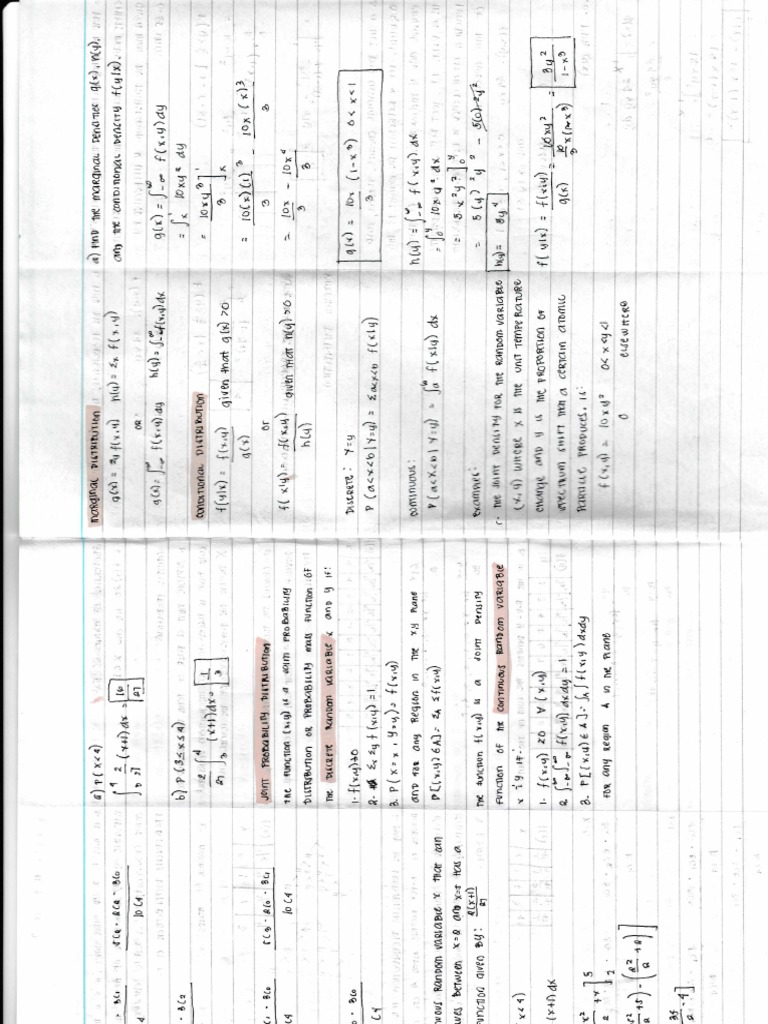 · 3C1
5C2 · 2C2 · 3C0
10C4
· 3C2
C1 · 3C0
C4
5C3 · 2C0 · 3C1
10C4
0 · 3C0
C4
random variable x that can
between x=2 and x=5 has a
function given by: 2(x+1)/27
x<4)
(x+1) dx
a) P(x<4)
∫ 2/27 (x+1)dx = 16/27
b) P(3≤x≤4)
2/27 ∫₃⁴ (x+1)dx = 1/3
JOINT PROBABILITY DISTRIBUTION
the function f(x,y) is a joint probability
distribution or probability mass function of
the discrete random variable x and y if:
1. f(x,y)≥0
2. Σx Σy f(x,y)=1
3. P(X=x, Y=y) = f(x,y)
and for any region in the xy plane
P[(x,y)∈A] = ΣA Σf(x,y)
the function f(x,y) is a joint density
function of the continuous random variable
x & y if:
1. f(x,y) ≥0 ∀(x,y)
2. ∫-∞^∞ ∫-∞^∞ f(x,y) dxdy = 1
3. P[(x,y)∈A] = ∫A∫f(x,y) dxdy
for any region A in the plane
MARGINAL DISTRIBUTION
g(x) = Σy f(x,y)   h(y) = Σx f(x,y)
or
g(x) = ∫-∞^∞ f(x,y)dy   h(y) = ∫-∞^∞ f(x,y)dx
CONDITIONAL DISTRIBUTION
f(y|x) = f(x,y)/g(x) given that g(x)>0
or
f(x|y) = f(x,y)/h(y) given that h(y)>0
DISCRETE: Y=y
P(a<x<b|Y=y) = Σa<x<b f(x|y)
CONTINUOUS:
P(a<x<b|Y=y) = ∫a^b f(x|y) dx
EXAMPLE:
1. the joint density for the random variable
(x,y) where x is the unit temperature
change and y is the proportion of
spectrum shift that a certain atomic
particle produces, is:
f(x,y) = 10xy²   0<x<y<1
0   elsewhere
a) find the marginal densities g(x), h(y),
and the conditional density f(y|x).
g(x) = ∫-∞^∞ f(x,y)dy
= ∫x^1 10xy² dy
= 10xy³/3 ]x^1
= 10(x)(1)³/3 - 10x·(x)³/3
= 10x/3 - 10x⁴/3
g(x) = 10x/3 (1-x³) 0<x<1
h(y) = ∫-∞^∞ f(x,y) dx
= ∫0^y 10xy² dx
= 5x²y² ]0^y
= 5(y)²y² - 5(0)²y²
h(y) = 5y⁴
f(y|x) = f(x,y)/g(x) = 10xy²/(10/3 x(1-x³)) = 3y²/(1-x³)